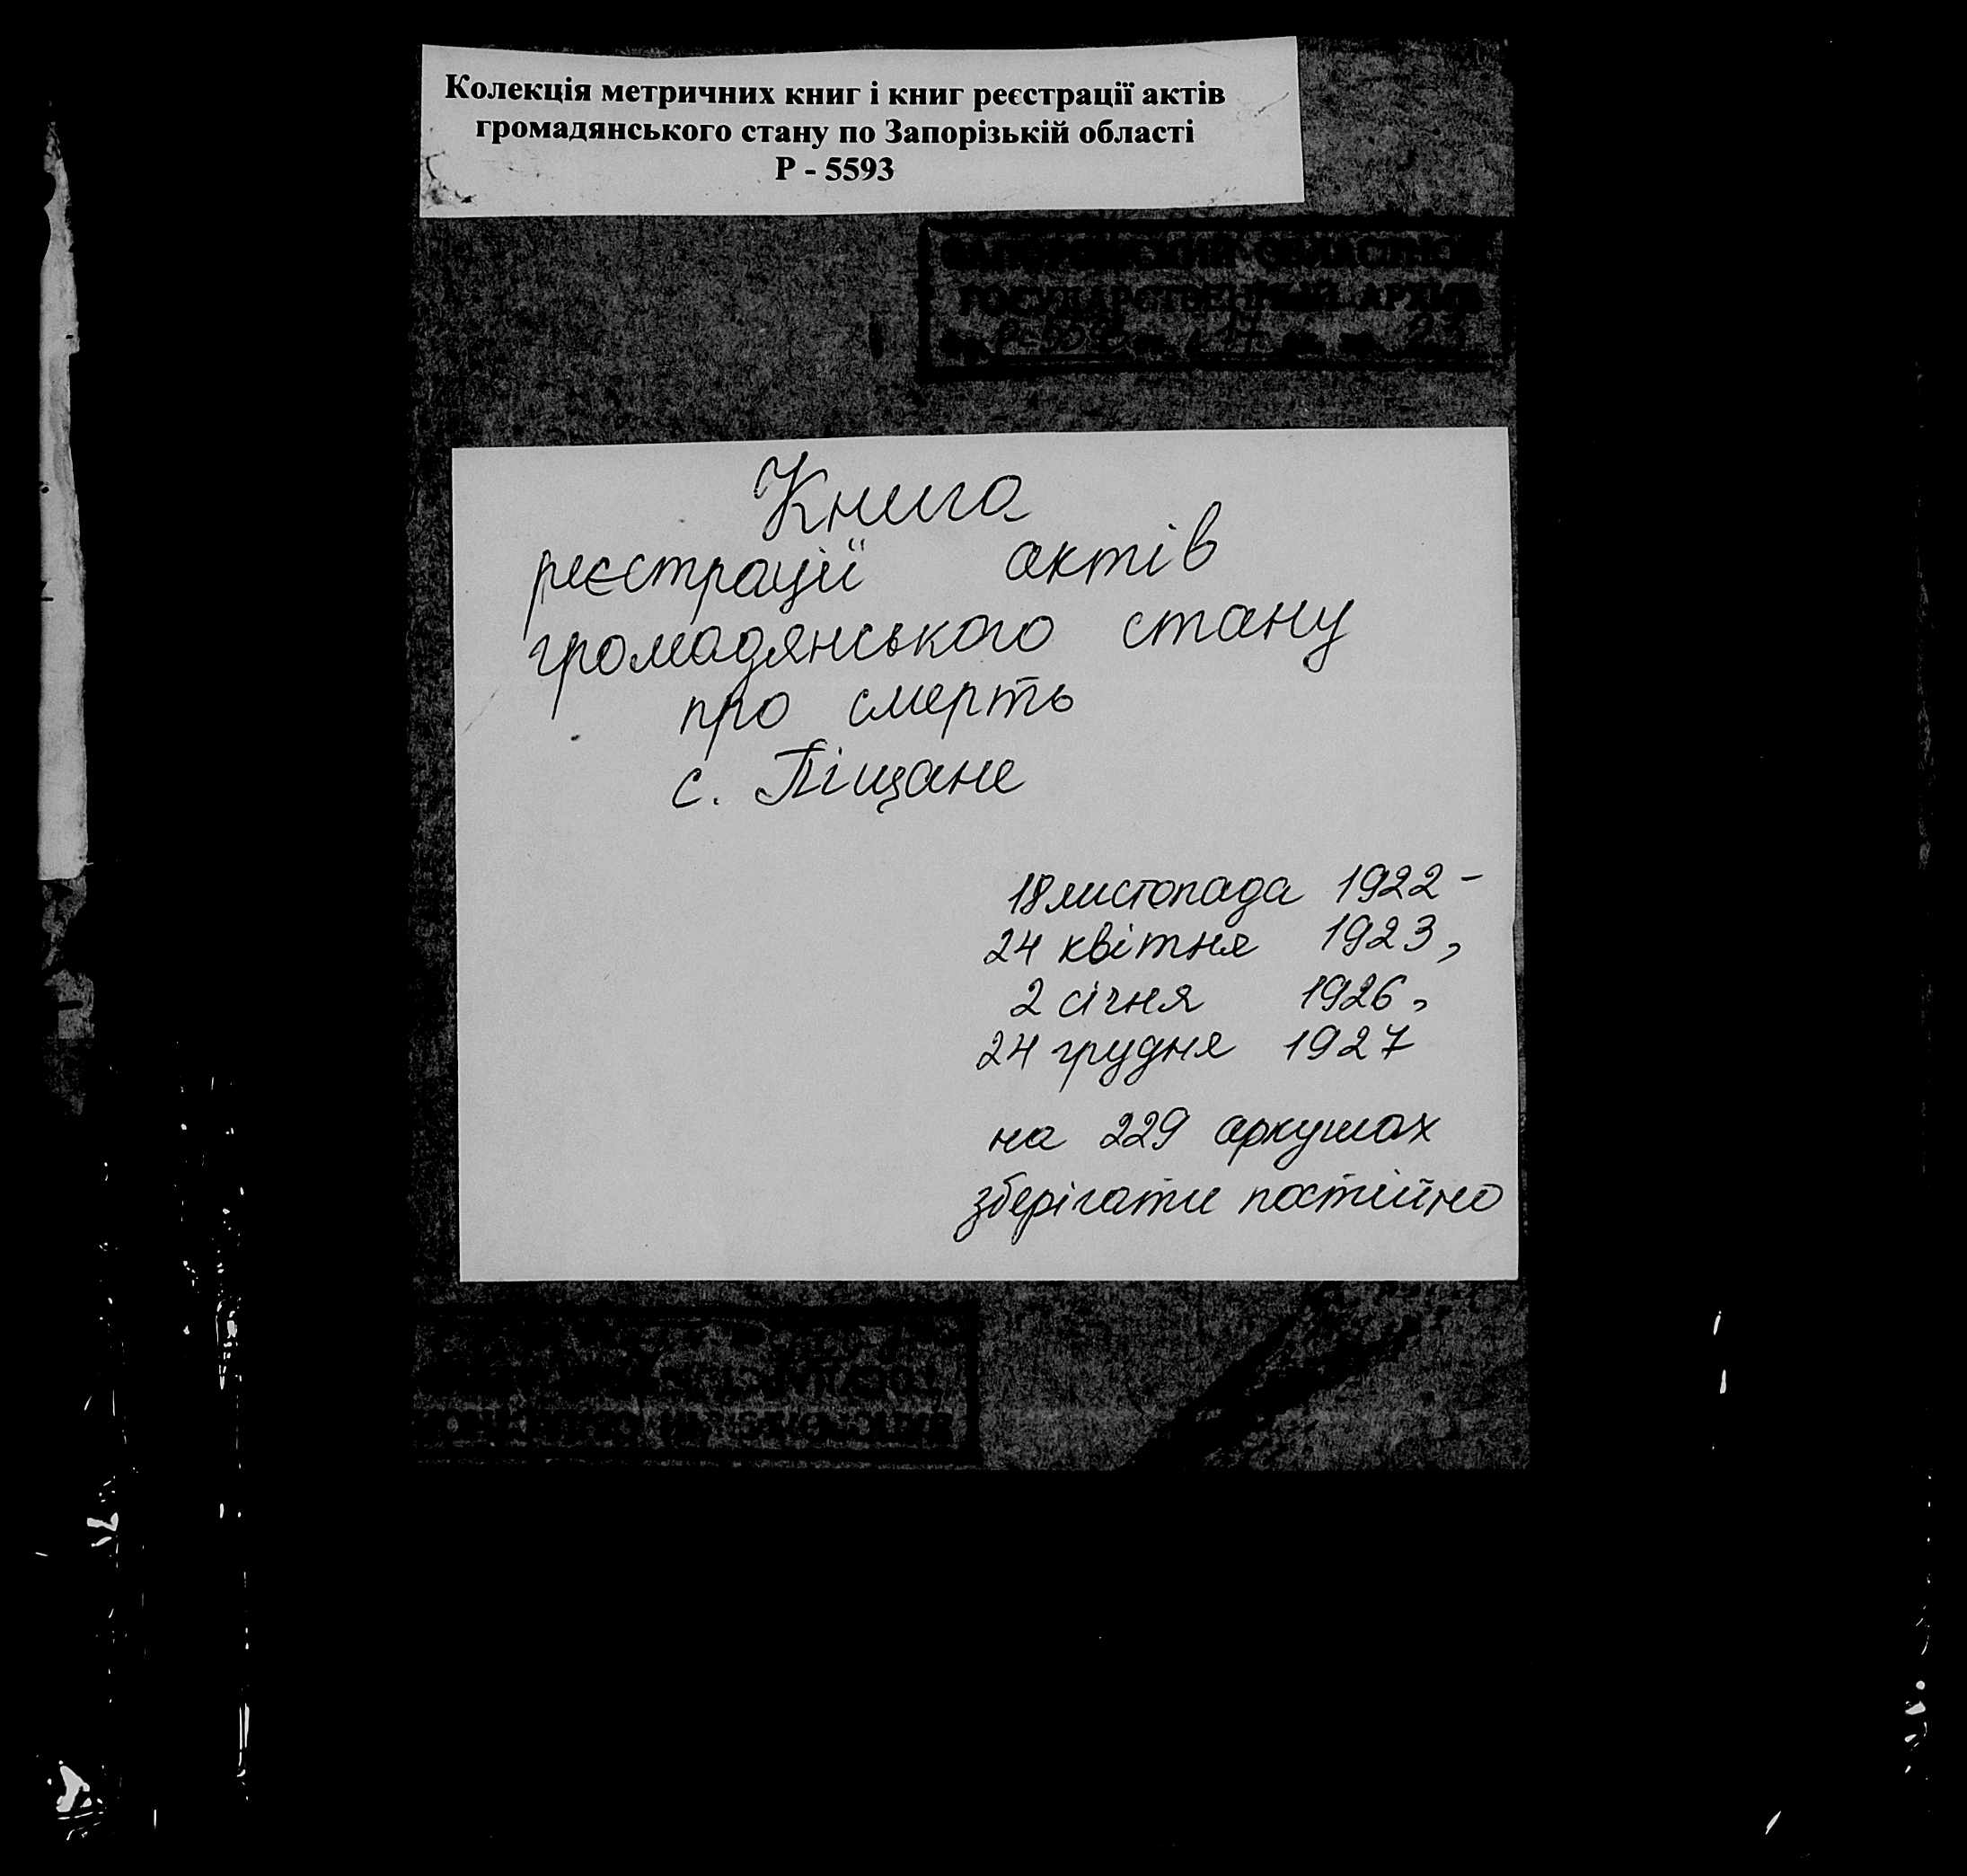 Колекція метричних книг і книг реєстрації актів
громадянського стану по Запорізькій області
Р - 5593
ГОСУДАРСТВЕННЫЙ АРХИВ
Книга
реєстрації актів
громадянського стану
про смерть
с. Піщане
18 листопада 1922 -
24 квітня 1923,
2 січня 1926,
24 грудня 1927
на 229 аркушах
зберігати постійно